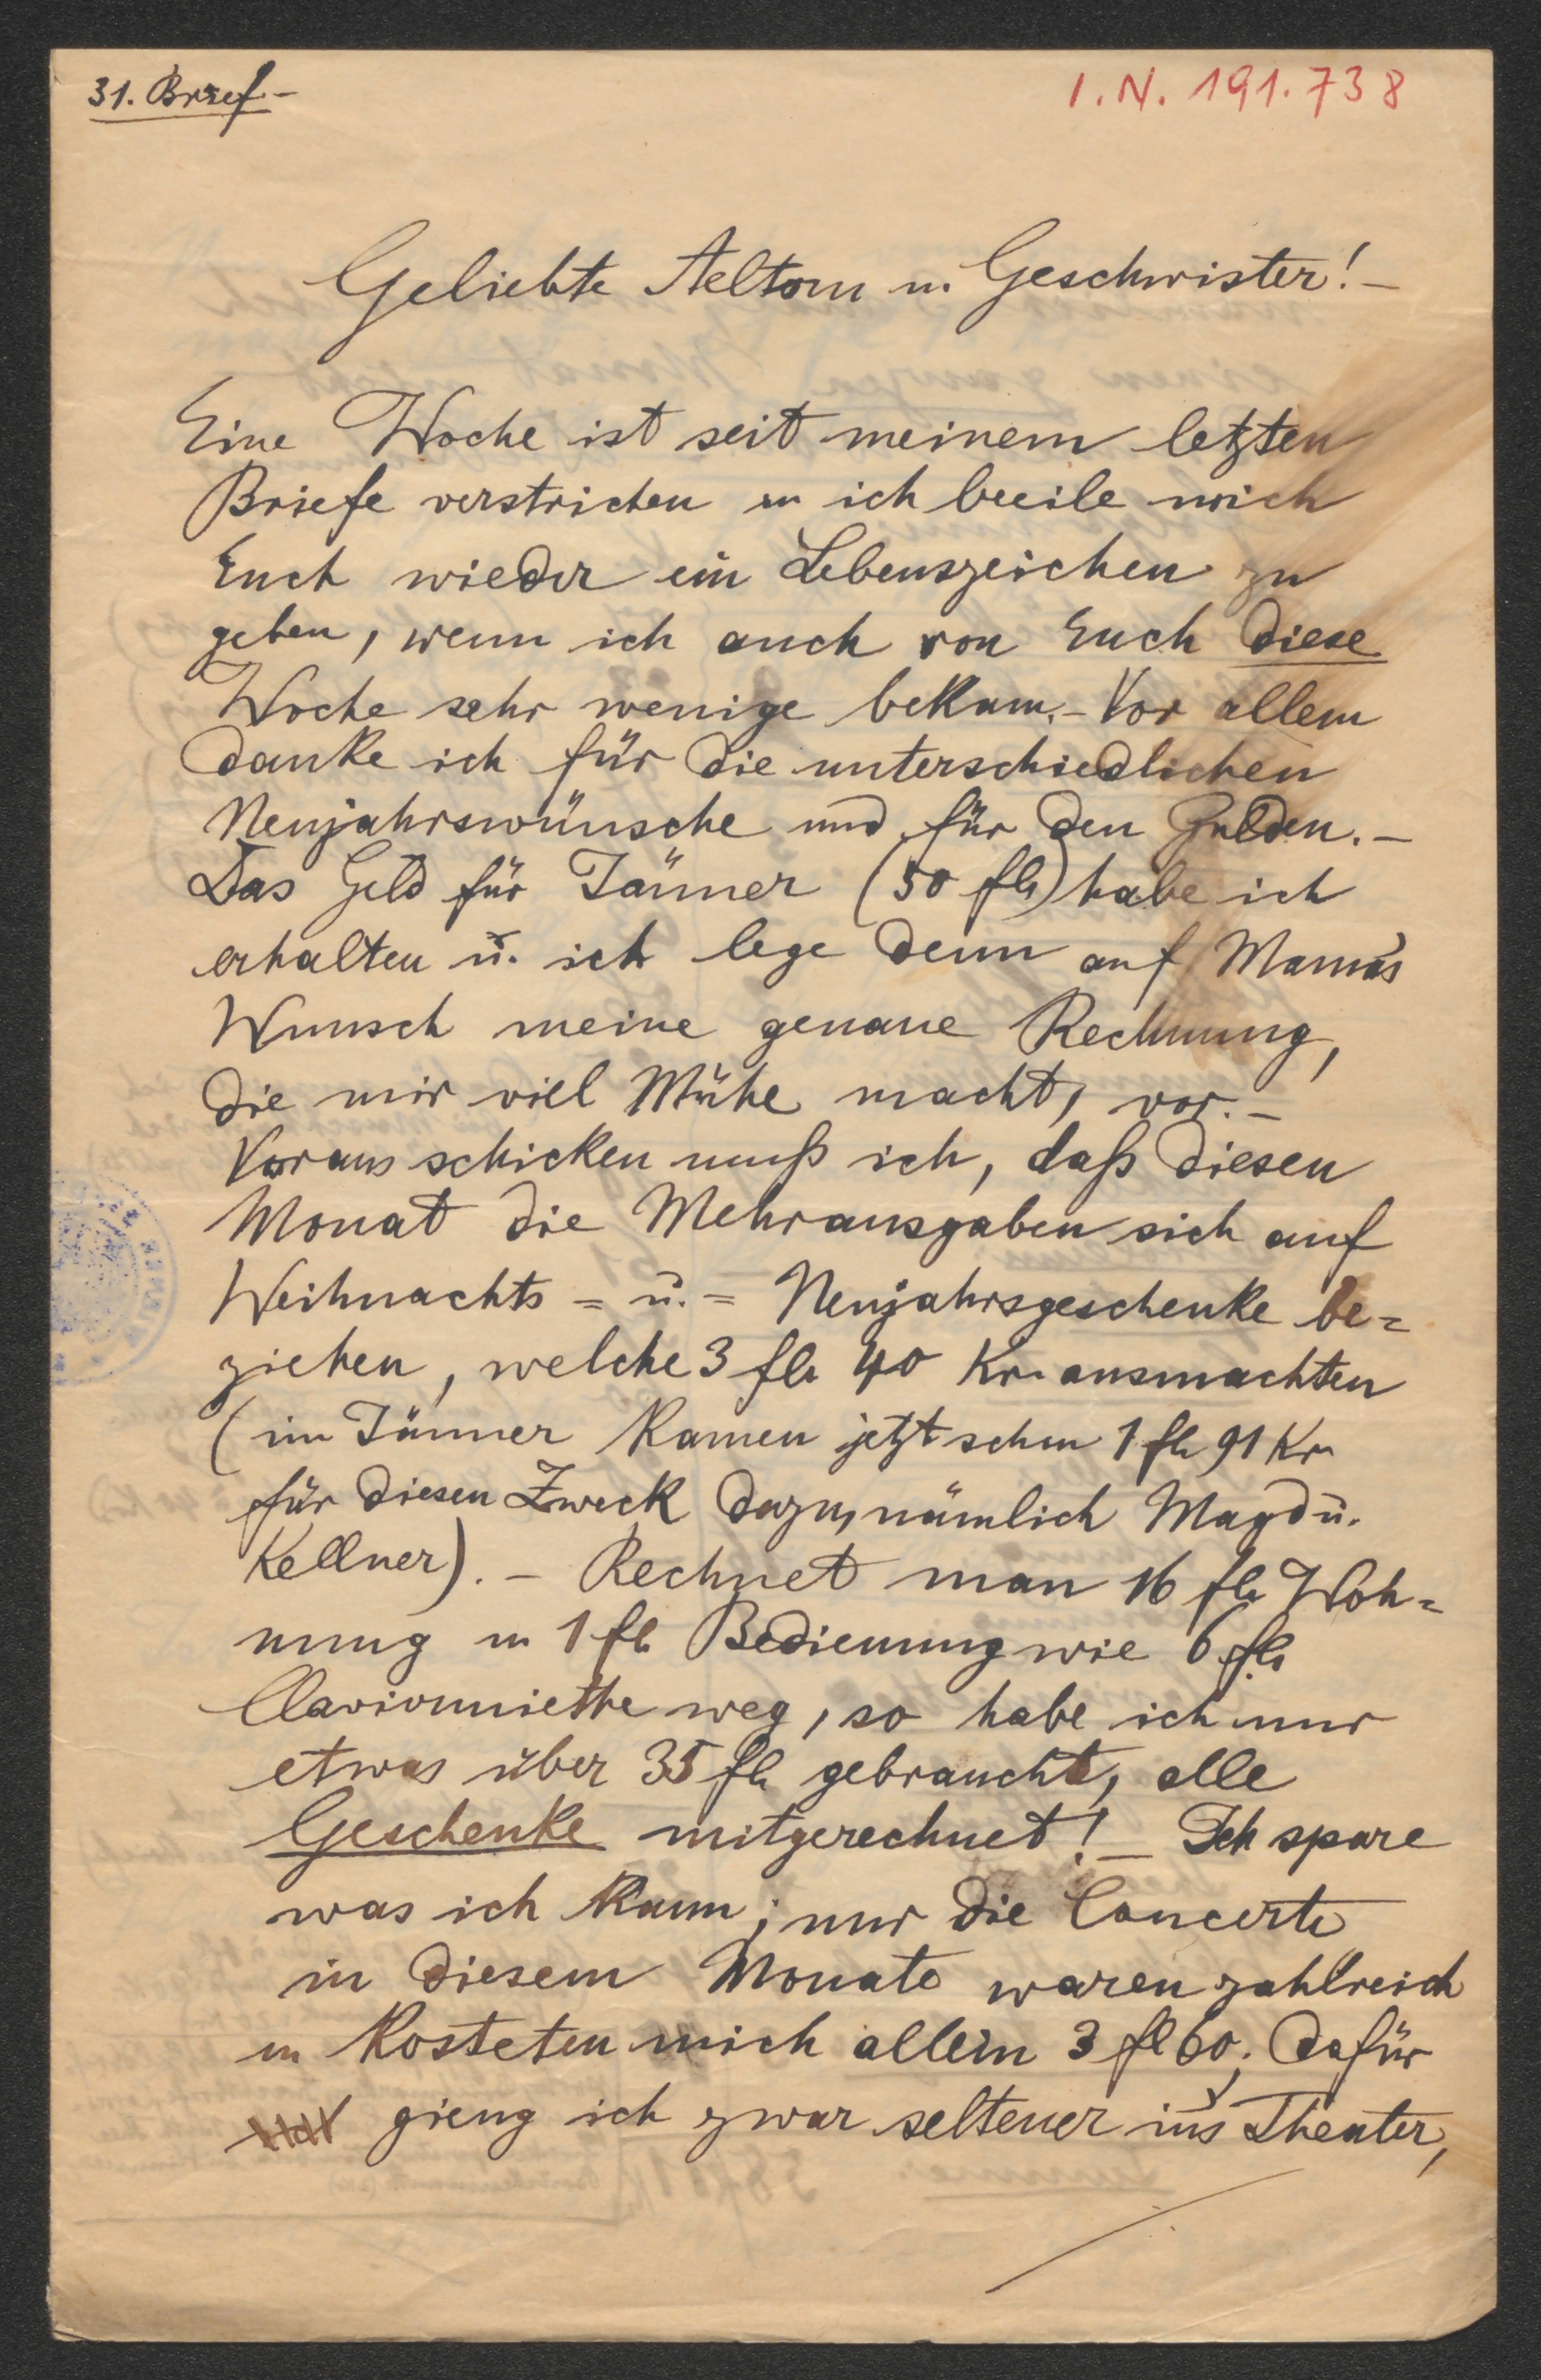 31. Brief-
I.N. 191.738
Geliebte Aeltern u. Geschwister!-
Eine Woche ist seit meinem letzten
Briefe verstrichen u ich beeile mich
Euch wieder ein Lebenszeichen zu
geben, wenn ich auch von Euch diese
Woche sehr wenige bekam.- Vor allem
danke ich für die unterschiedlichen
Neujahrswünsche und für den Gulden.-
Das Geld für Jänner (50 fl) habe ich
erhalten u. ich lege denn auf Mama's
Wunsch meine genaue Rechnung,
die mir viel Mühe macht, vor.-
Voraus schicken muß ich, daß diesen
Monat die Mehrausgaben sich auf
Weihnachts = u. = Neujahrsgeschenke be=
ziehen, welche 3 fl 40 Kr. ausmachten
(im Jänner kamen jetzt schon 1 fl 91 Kr
für diesen Zweck dazu, nämlich Magd u.
Kellner).- Rechnet man 16 fl Woh=
nung u 1 fl Bedienung wie 6 fl
Claviermiethe weg, so habe ich nur
etwas über 35 fl gebraucht, alle
Geschenke mitgerechnet!- Ich spare
was ich kann; nur die Concerte
in diesem Monate waren zahlreich
u kosteten mich allein 3 fl 60; dafür
gieng ich zwar seltener ins Theater,